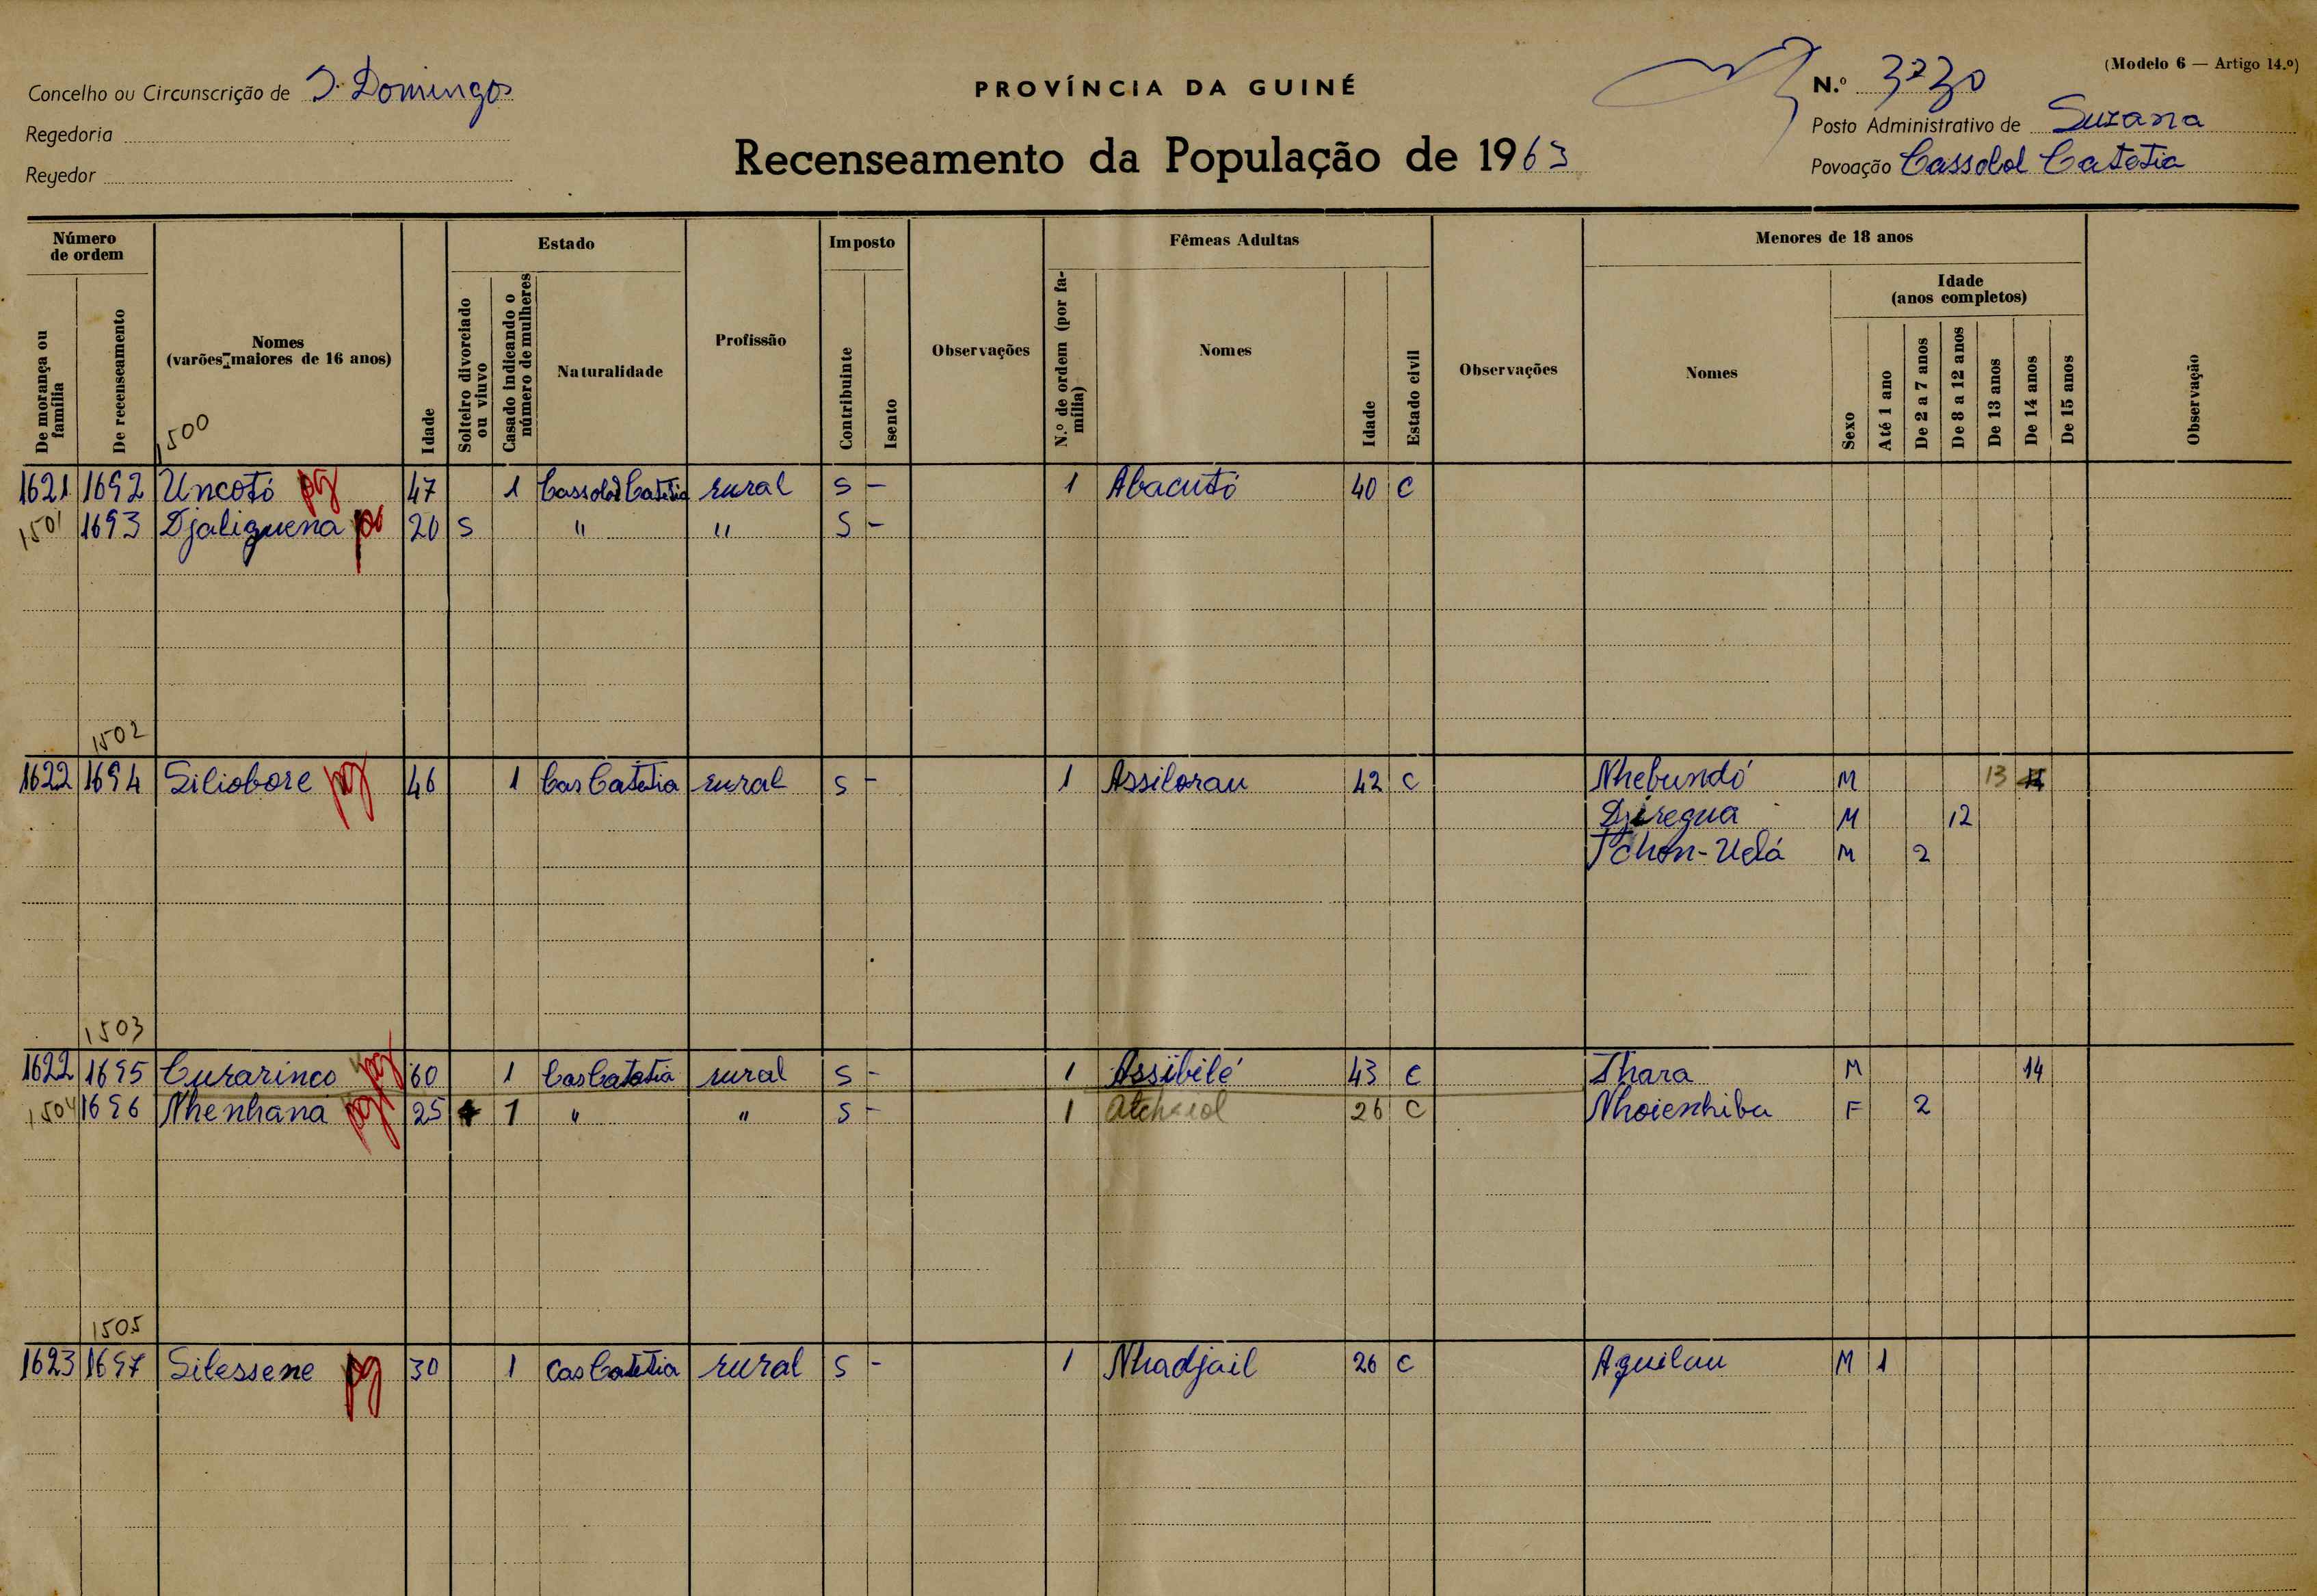 (Modelo 6 — Artigo 14.º)
Concelho ou Circunscrição de S. Domingos
PROVÍNCIA DA GUINÉ
N.º
Regedoria
Posto Administrativo de Suzana
Recenseamento da População de 1963
Regedor
Povoação Cassolol Catetia
Número de ordem
De morança ou família
De recenseamento
Nomes
(varões maiores de 16 anos)
Idade
Estado
Solteiro divorciado ou viuvo
Casado indicando o número de mulheres
Naturalidade
Profissão
Imposto
Contribuinte
Isento
Observações
Fêmeas Adultas
N.º de ordem (por família)
Nomes
Idade
Estado civil
Observações
Menores de 18 anos
Nomes
Sexo
Idade
(anos completos)
Até 1 ano
De 2 a 7 anos
De 8 a 12 anos
De 13 anos
De 14 anos
De 15 anos
Observação
1500
1621 1692 Uncotó pg 47 1 Cassolol Catetia rural S - 1 Abacutó 40 C
1501 1693 Djaliguena 20 S " " S -
1502
1622 1694 Siliobore pg 46 1 Cas Catetia rural S - 1 Assilorau 42 C Nhebundó M 13
Djiregua M 12
Tchon-Uelá M 2
1503
1622 1695 Curarinco pg 60 1 Cas Catetia rural S - 1 Assibilé 43 C Thara M 14
1504 1696 Nhenhana pg 25 1 " " S - 1 26 C Nhoienhiba F 2
1505
1623 1697 Silessene pg 30 1 Cas Catetia rural S - 1 Nhadjail 26 C Aguilau M 1